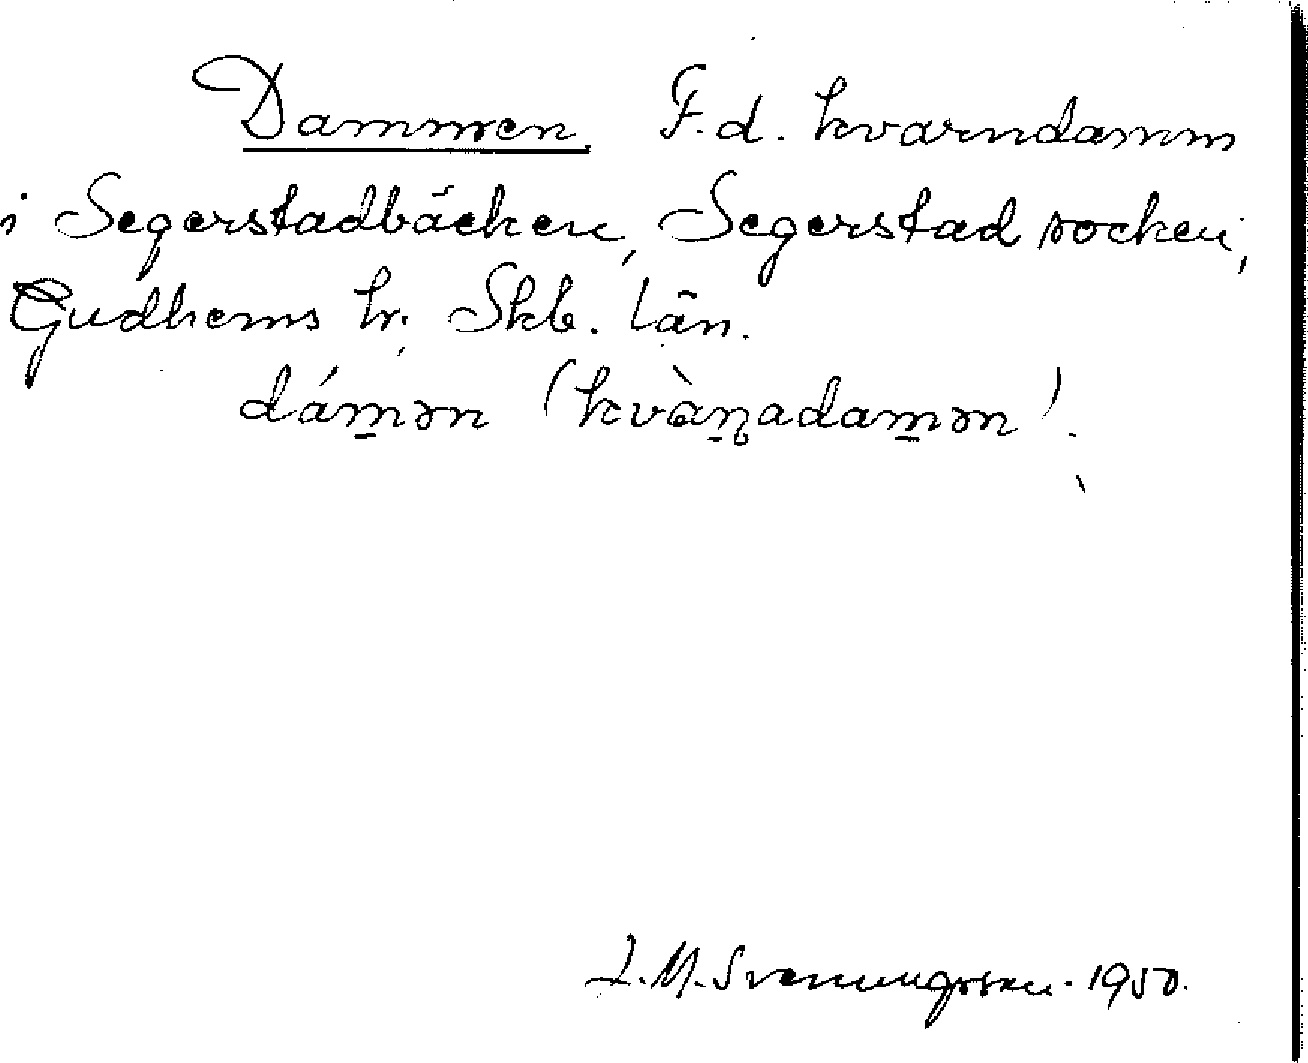 Dammen. F.d. kvarndamm
i Segerstadbäcken, Segerstad socken,
Gudhems hr. Skb. län.
dám̲ən (kvàn̲̥adam̲ən).
J. M. Svenungsson. 1950.